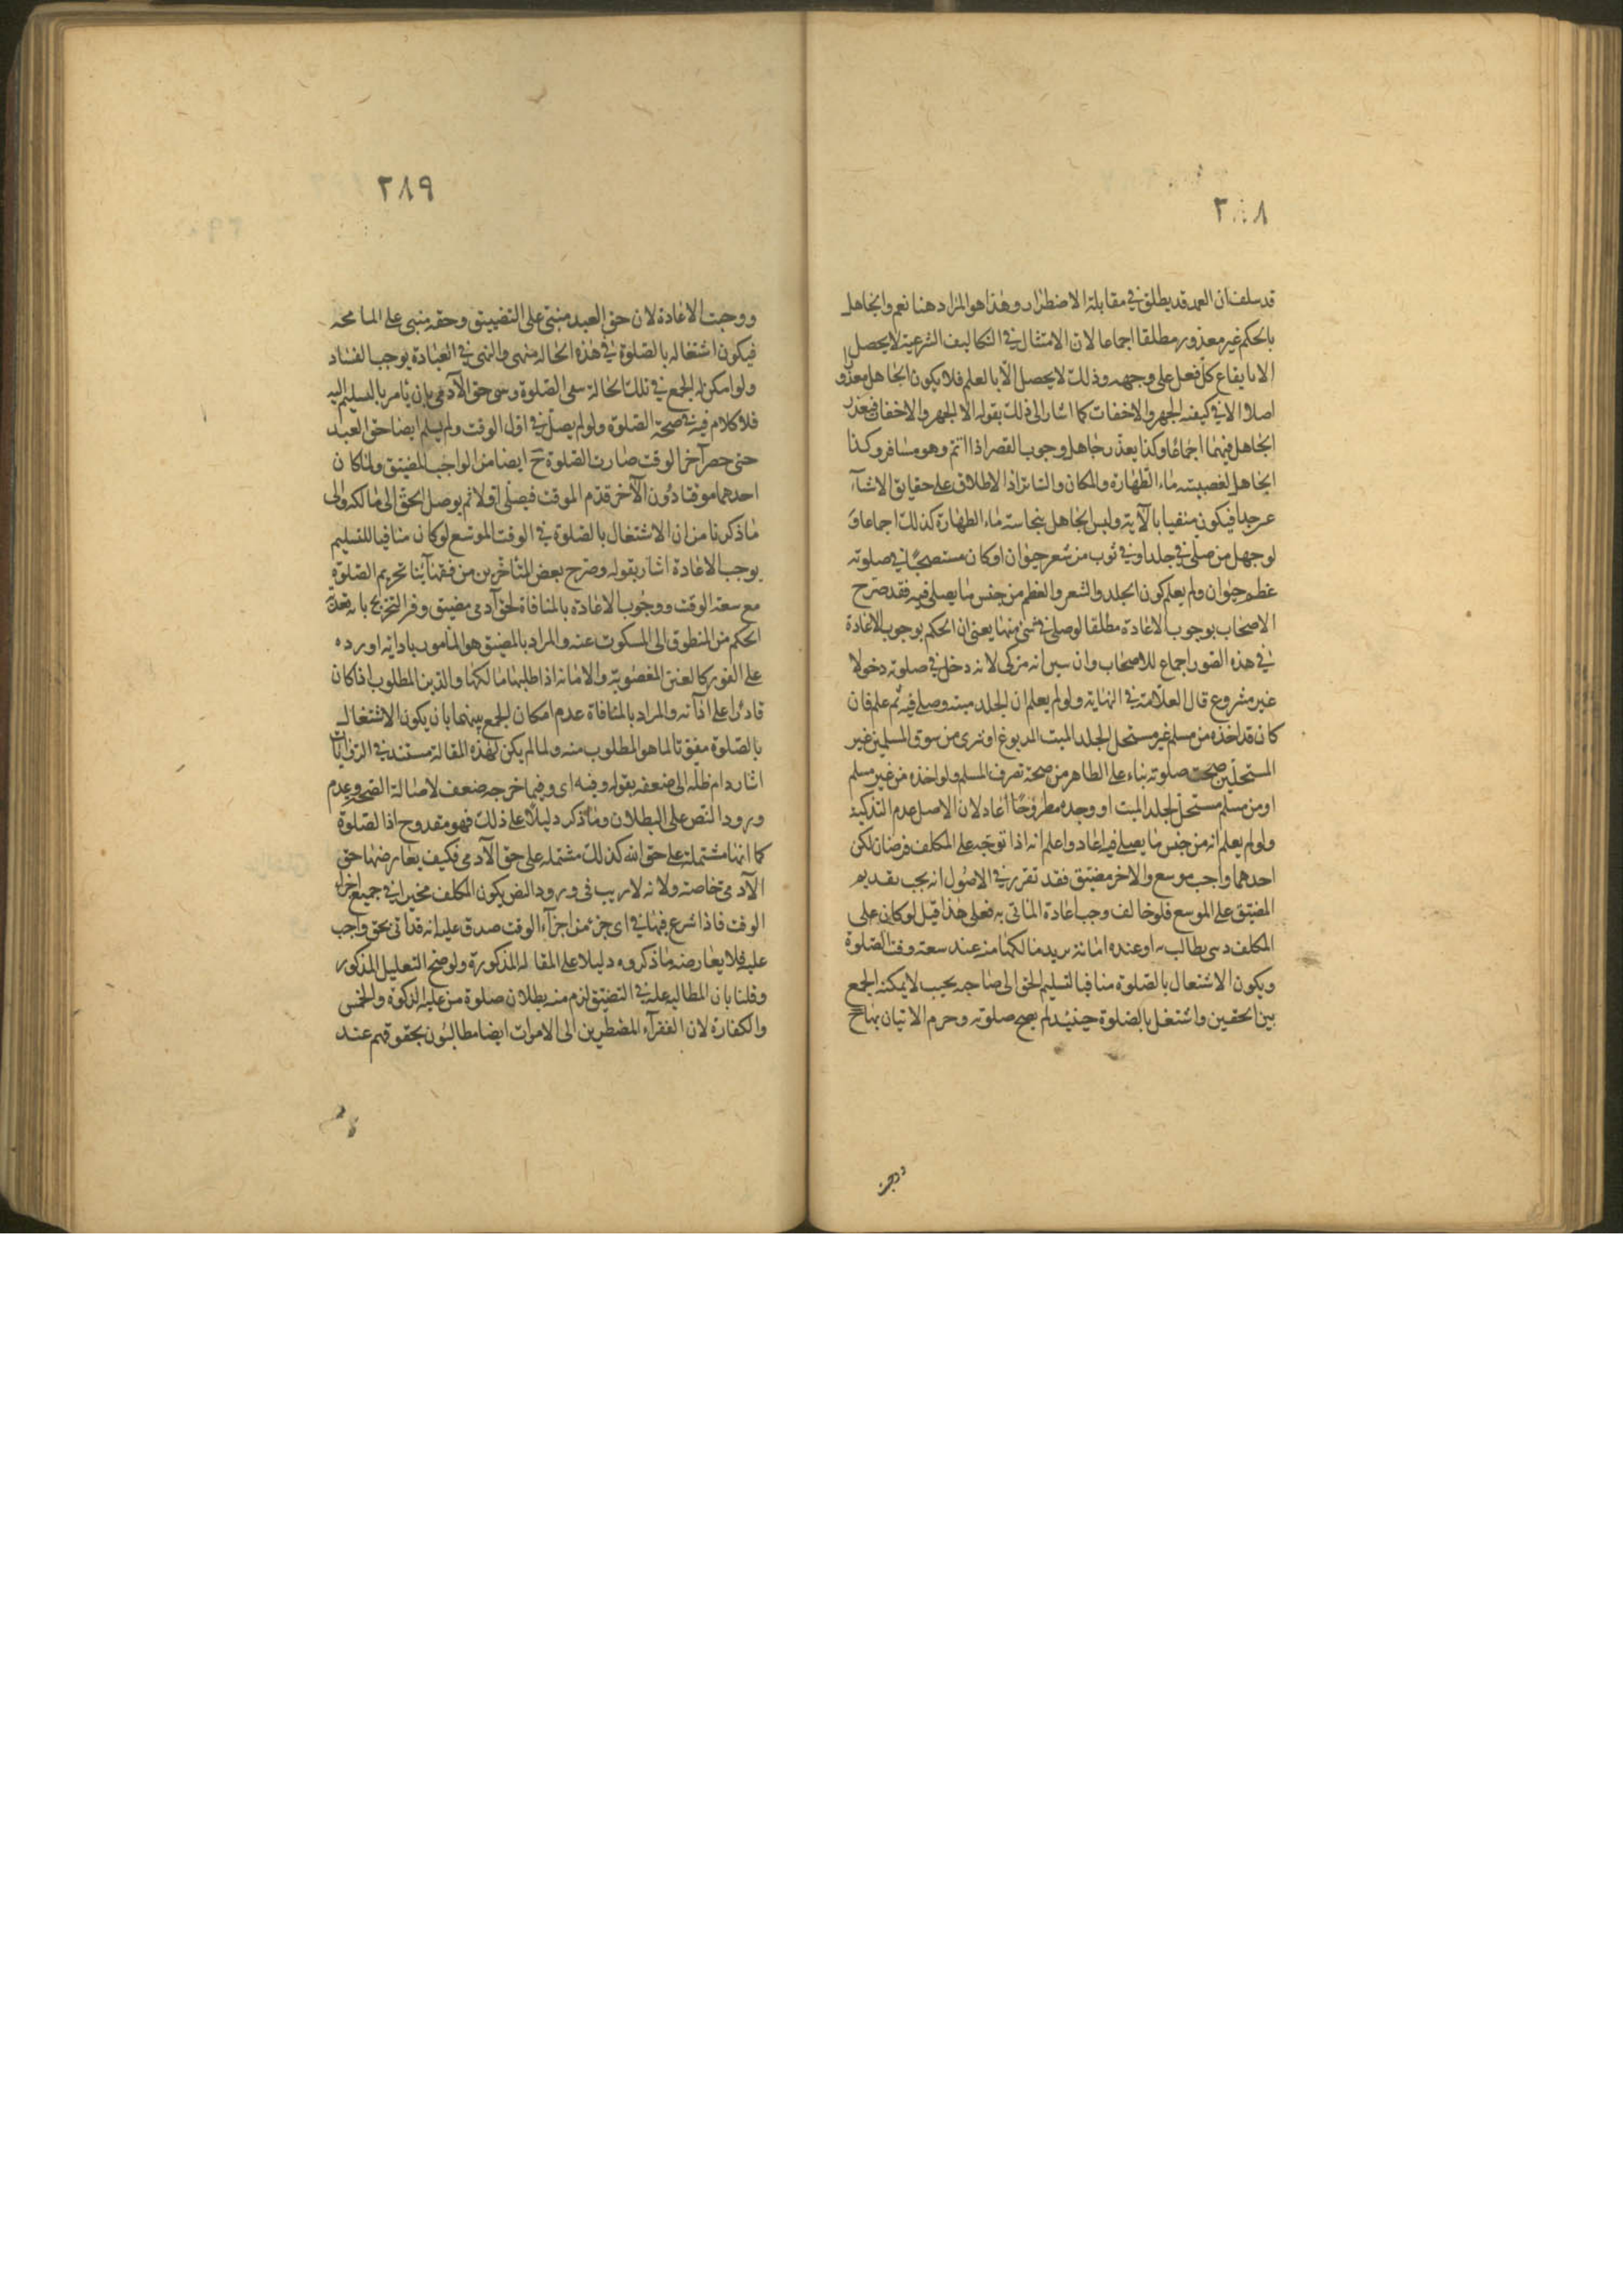 ٢٨٨
قد سلف ان العمد قد يطلق في مقابلة الاضطرار وهذا هو المراد هنا نعم والجاهل
بالحكم غير معذور مطلقا اجماعا لان الامتثال في التكاليف الشرعية لا يحصل
الا بايقاع كل فعل على وجهه وذلك لا يحصل الا بالعلم فلا يكون الجاهل معذورا
اصلا الا في كيفية الجهر والاخفات كما اشار الى ذلك بقوله الا الجهر والاخفات فيعذر
الجاهل فيهما اجماعا وكذا يعذر جاهل وجوب القصر اذا اتم وهو مسافر وكذا
الجاهل لغصبيته ماء الطهارة والمكان والساتر اذ الاطلاق على حقايق الاشياء
عسر جدا فيكون منفيا بالآية وليس الجاهل بنجاسة ماء الطهارة كذلك اجماعا و
لو جهل من صلى في جلد او في ثوب من شعر حيوان او كان مستصحبا في صلوته
عظم حيوان ولم يعلم كون الجلد والشعر والعظم من جنس ما يصلى فيه فقد صرح
الاصحاب بوجوب الاعادة مطلقا لو صلى في شئ منها يعني ان الحكم بوجوب الاعادة
في هذه الصور اجماع للاصحاب وان تبين انه مزكى لانه دخل في صلوته دخولا
غير مشروع قال العلامة في النهاية ولو لم يعلم ان الجلد ميتة وصلى فيه ثم علم فان
كان قد اخذه من مسلم غير مستحل الجلد الميت المدبوغ او شرى من سوق المسلمين غير
المستحلين صحت صلوته بناء على الظاهر من صحة تصرف المسلم ولو اخذه من غير مسلم
او من مسلم مستحل لجلد الميت او وجده مطروحا اعاد لان الاصل عدم التذكية
ولو لم يعلم انه من جنس ما يصلى فيه اعاد واعلم انه اذا توجه على المكلف فرضان لكن
احدهما واجب موسع والاخر مضيق فقد تقرر في الاصول انه يجب تقديم
المضيق على الموسع فلو خالف وجب اعادة الماتى به فعلى هذا قيل لو كان على
المكلف دين يطالب به او عنده امانة يريد مالكها منه عند سعة وقت الصلوة
ويكون الاشتغال بالصلوة منافيا لتسليم الحق الى صاحبه بحيث لا يمكنه الجمع
بين الحقين واشتغل بالصلوة حينئذ لم يصح صلوته وحرم الاتيان بها ح
ووجبت
٢٨٩
ووجبت الاعادة لان حق العبد مبنى على التضييق وحقه مبنى على المسامحة
فيكون اشتغاله بالصلوة في هذه الحالة منهى والنهى في العبادة يوجب الفساد
ولو امكن له الجمع في تلك الحالة سعى الصلوة وسى حق الآدمى بان يأمر بالتسليم اليه
فلا كلام فيه في صحة الصلوة ولو لم يصل في اول الوقت ولم يسلم ايضا حق العبد
حتى حصر آخر الوقت صارت الصلوة ح ايضا من الواجب المضيق ولما كان
احدهما موقتا دون الآخر قدم الموقت فيصلى اولا ثم يوصل الحق الى مالكه والى
ما ذكرنا من ان الاشتغال بالصلوة في الوقت الموسع لو كان منافيا للتسليم
يوجب الاعادة اشار بقوله وصرح بعض المتأخرين من فقهآئنا تحريم الصلوة
مع سعة الوقت ووجوب الاعادة بالمنافاة لحق آدمى مضيق وفسر التخريج بانه تعدية
الحكم من المنطوق الى المسكوت عنه والمراد بالمضيق هو المأمور بادائه او رده
على الفور كالعين المغصوبة والامانة اذا طلبها مالكها والدين المطلوب اذا كان
قادرا على ادآئه والمراد بالمنافاة عدم امكان الجمع بينهما بان يكون الاشتغال
بالصلوة مفوتا لما هو المطلوب منه ولما لم يكن لهذه المقالة مستند في الروايات
اشار دام ظله الى ضعفه بقوله وفيه اى وفيما خرجه ضعف لاصالة الصحة وعدم
ورود النص على البطلان وما ذكر دليلا على ذلك فهو مقدوح اذ الصلوة
كما انها مشتملة على حق الله كذلك مشتملة على حق الآدمى فكيف يعارضها حق
الآدمى خاصة ولانه لا ريب فى ورود النص بكون المكلف مخيرا في جميع اجزاء
الوقت فاذا شرع فيها في اى جزء من اجزآء الوقت صدق عليه انه قد اتى بحق واجب
عليه فلا يعارضه ما ذكروه دليلا على المقالة المذكورة ولو صح التعليل المذكور
وقلنا بان المطالبة علة في التضيق لزم منه بطلان صلوة من عليه الزكوة والخمس
والكفارة لان الفقرآء المضطرين الى الامرات ايضا مطالبون بحقوقهم عند